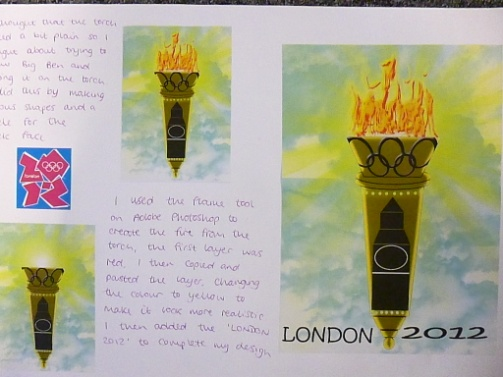 thought that the torch
a bit plain so I
about trying to
Big Ben and
it on the torch
did this by making
shapes and a
for the
face
London
I used the flame tool
on Adobe Photoshop to
create the fire from the
torch, the first layer was
red. I then copied and
pasted the layer, changing
the colour to yellow to
make it look more realistic
I then added the 'LONDON
2012' to complete my design
LONDON 2012